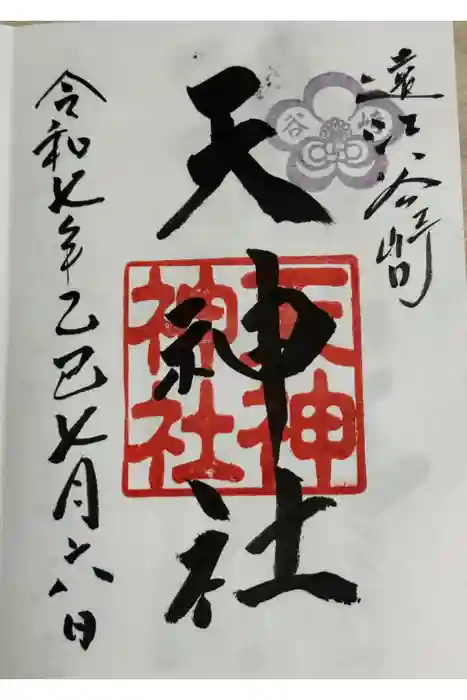 遠江谷崎
天神社
令和七年乙巳七月六日
谷崎
天神
神社